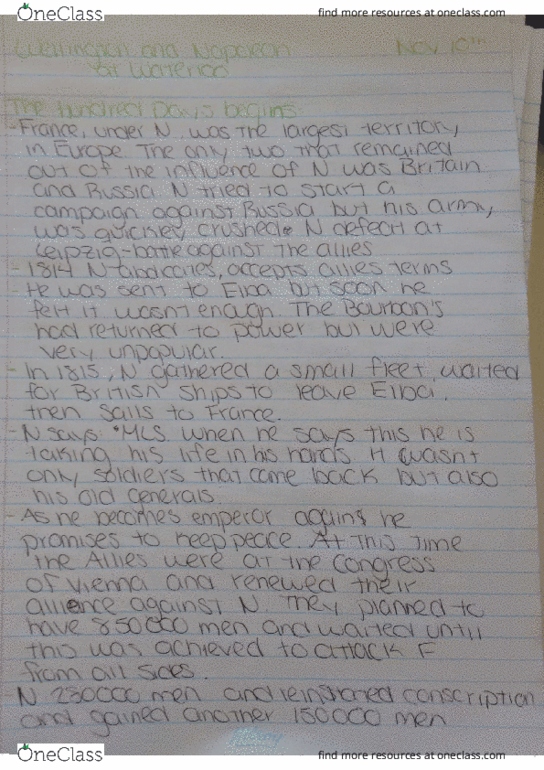 OneClass
find more resources at oneclass.com
Wellington and Napoleon
at Waterloo
Nov 10th
The Hundred Days begins
-France, under N. was the largest territory
in Europe. The only two that remained
out of the influence of N was Britain
and Russia. N tried to start a
campaign against Russia but his army
was quickley crushed. N defeat at
Leipzig-battle against the allies
- 1814 N abdicates, accepts allies terms
He was sent to Elba but soon he
felt it wasnt enough. The Bourbon's
had returned to power but were
very unpopular.
- In 1815, N gathered a small fleet, waited
for British ships to leave Elba,
then sails to France.
- N says: "MLS. when he says this he is
taking his life in his hands. It wasnt
only soldiers that come back but also
his old generals.
- As he becomes emperor agains he
promises to keep peace. At this time
the Allies were at the Congress
of Vienna and renewed their
allience against N. They planned to
have 850000 men and waited until
this was achieved to attack F
from all sides.
- N 230000 men and reinstated conscription
and gained another 150000 men
OneClass
find more resources at oneclass.com